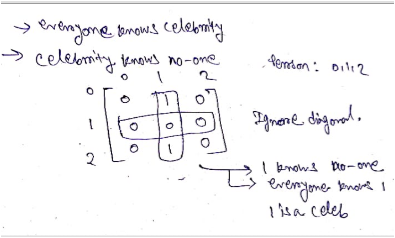 → everyone knows celebrity
→ celebrity knows no-one
0 1 2
Person: 0,1,2
0 0 1 0
1 0 0 0
Ignore diagonal.
2 0 1 0
→ 1 knows no-one
→ everyone knows 1
1 is a celeb